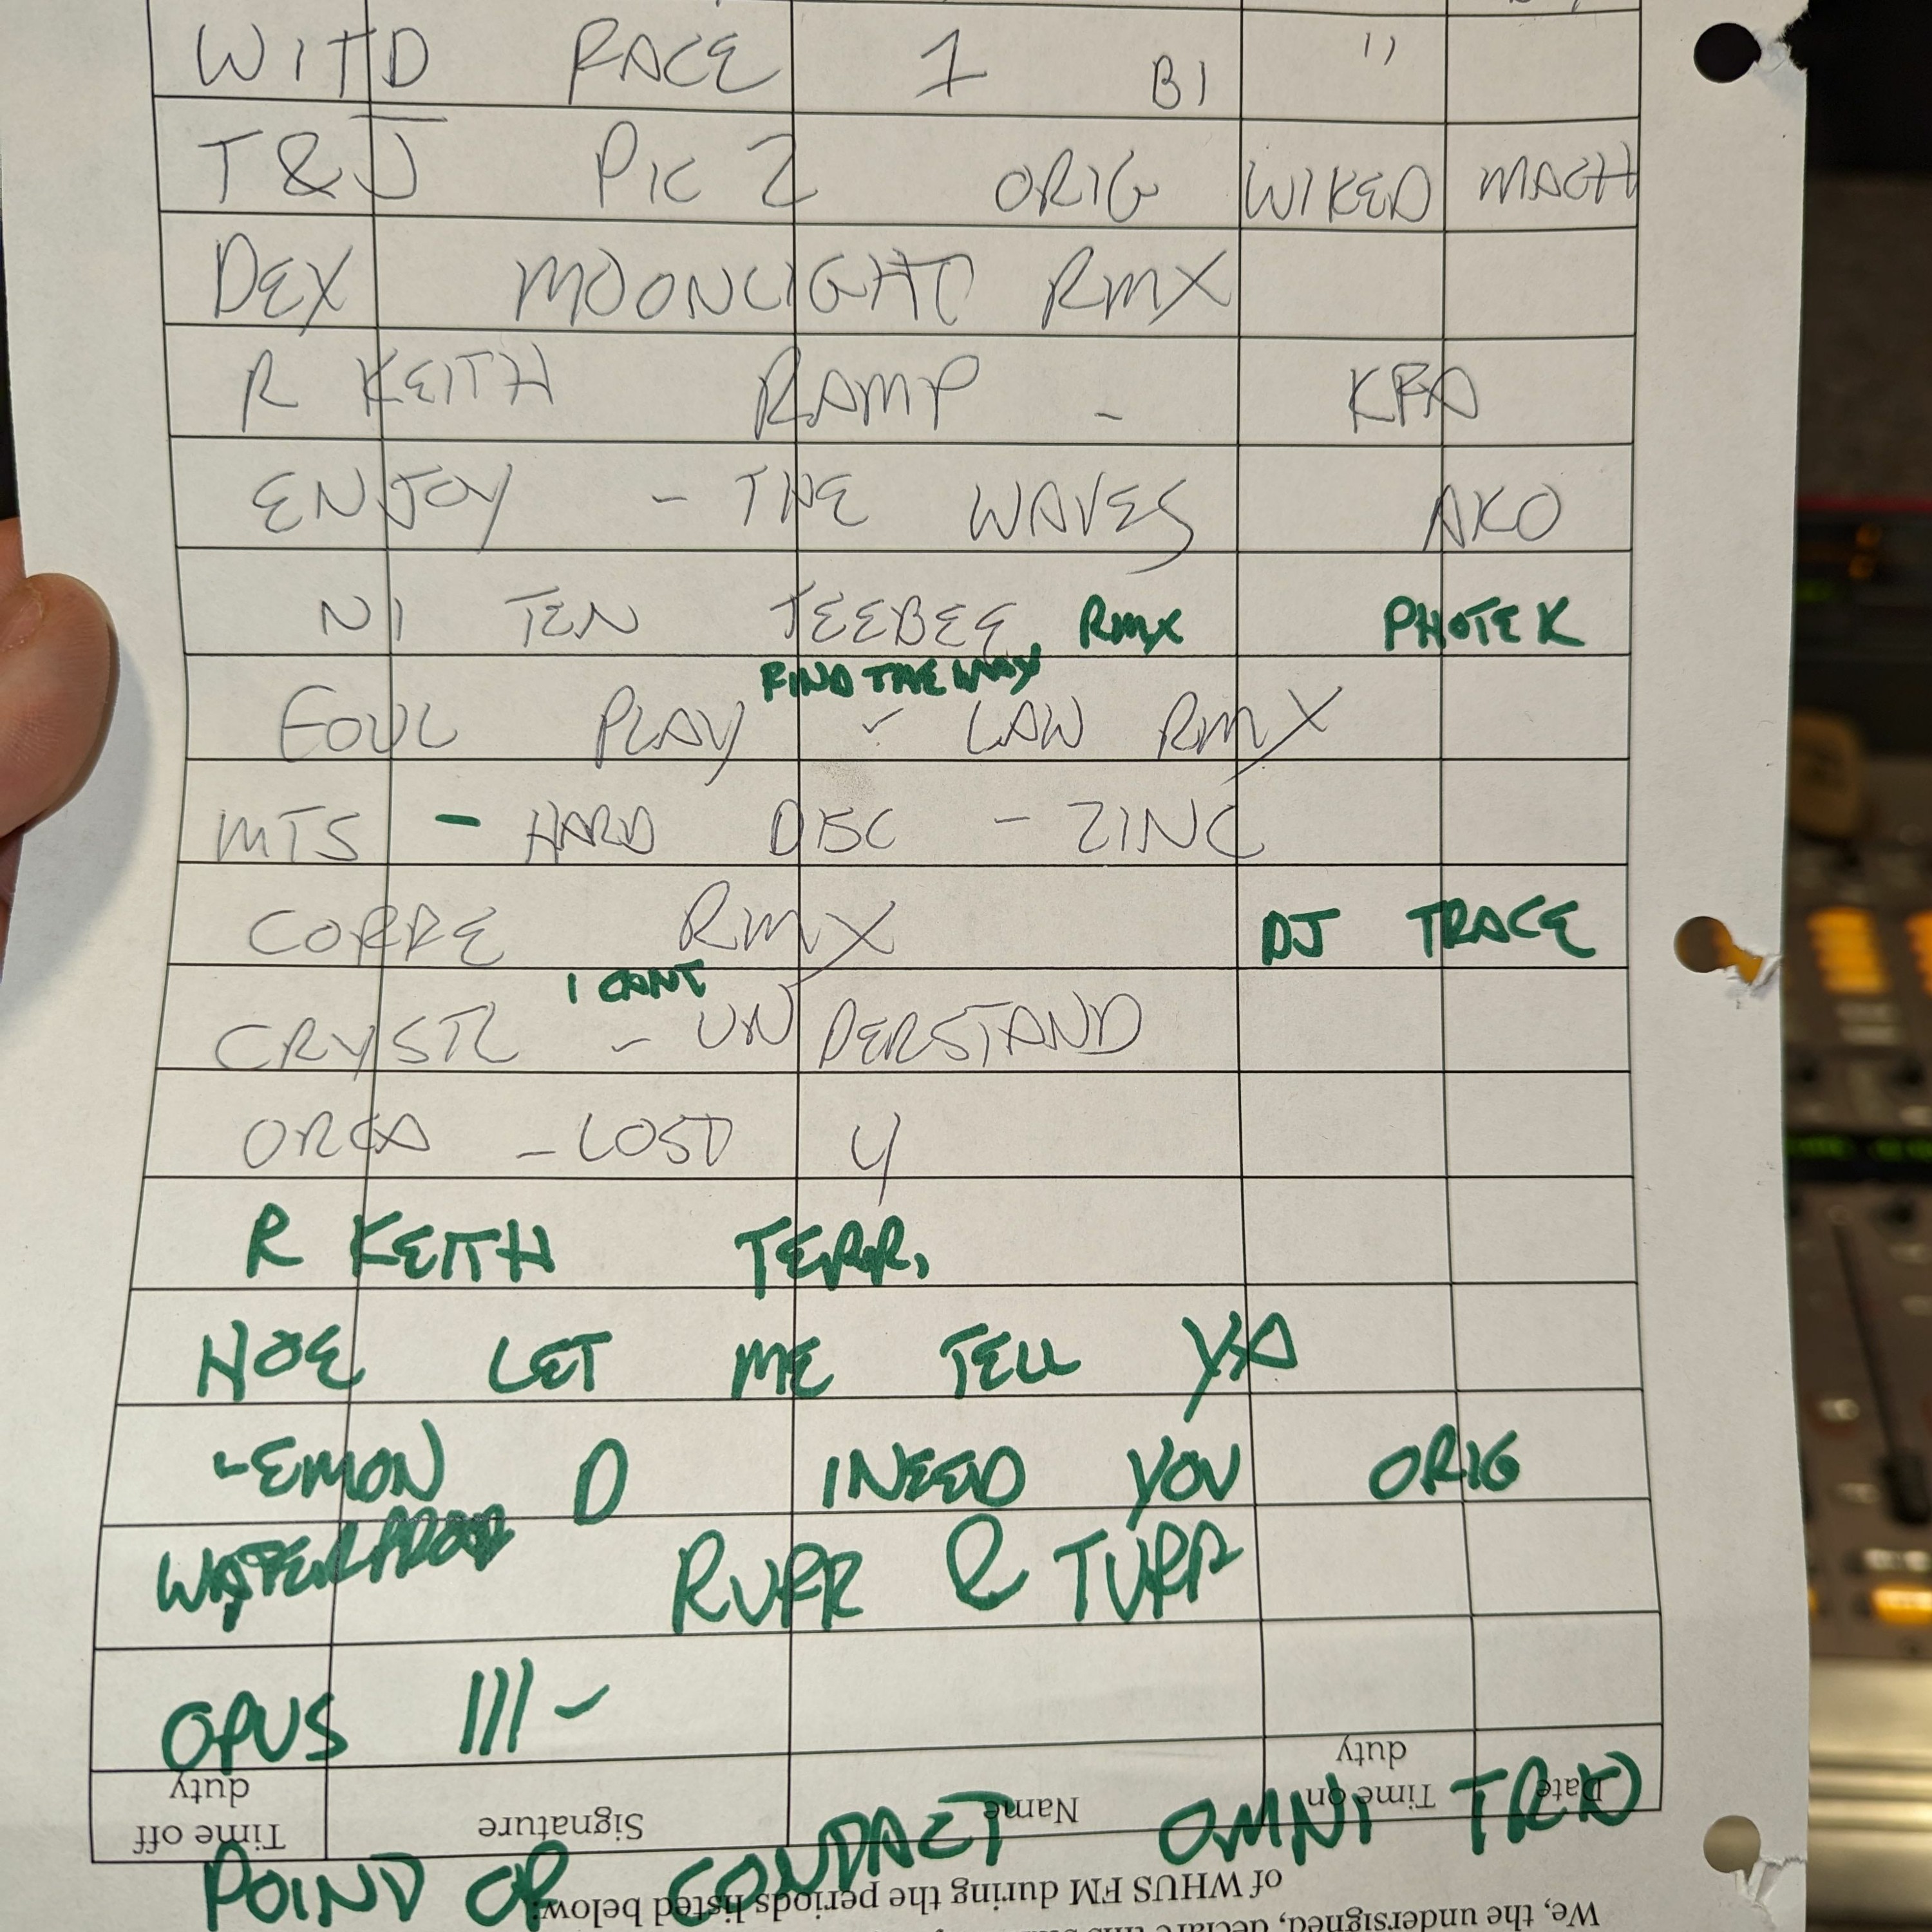 WITD RACE 1 B1 "
T & J PIC 2 ORIG WIKED MACH
DEX MOONLIGHT RMX
R KEITH RAMP - KFA
ENJOY - THE WAVES AKO
N1 TEN TEEBEE RMX PHOTEK
FIND THE WAY
FOUL PLAY - LAW RMX
MTS - HARD DISC - ZINC
COPPE RMX DJ TRACE
I CANT
CRYSTL - UNDERSTAND
ORCA - LOST 4
R KEITH TERR.
NOE LET ME TELL YA
LEMON D I NEED YOU ORIG
RUPR & TURR
OPUS III -
Date Time on duty Name Signature Time off duty
POINT OF CONTACT OMNI TRIO
of WHUS FM during the periods listed below:
We, the undersigned,